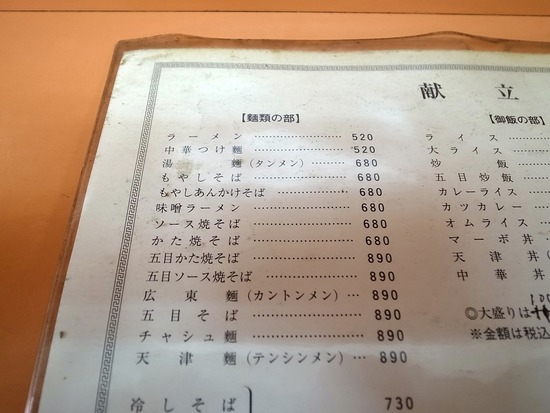 献立
【麺類の部】
ラーメン ………………… 520
中華つけ麺 ………………… 520
湯麺(タンメン) ……… 680
もやしそば ………………… 680
もやしあんかけそば ………………… 680
味噌ラーメン ………………… 680
ソース焼そば ………………… 680
かた焼そば ………………… 680
五目かた焼そば ………………… 890
五目ソース焼そば ………………… 890
広東麺(カントンメン) … 890
五目そば ………………… 890
チャシュ麺 ………………… 890
天津麺(テンシンメン) … 890
冷しそば 730
【御飯の部】
ライス
大ライス
炒飯
五目炒飯
カレーライス
カツカレー
オムライス
マーボ丼
天津丼
中華丼
◎大盛りは
※金額は税込